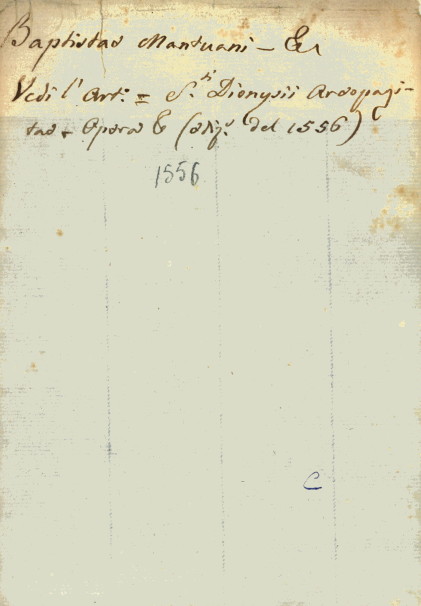 Baptistae Mantuani - &
Vedi l' Art: = S.ti Dionysii Areopagi-
tae + Opera & (ediz: del 1556)
1556
C